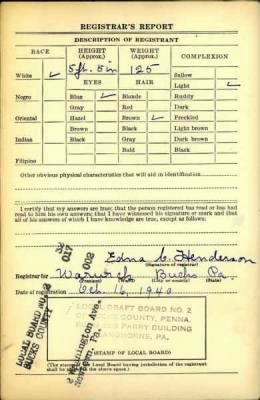 REGISTRAR'S REPORT
DESCRIPTION OF REGISTRANT
RACE HEIGHT (Approx.) WEIGHT (Approx.) COMPLEXION
5 ft. 8 in 125
White ✓ EYES HAIR Sallow
Light ✓
Negro Blue ✓ Blonde Ruddy
Gray Red Dark
Oriental Hazel Brown ✓ Freckled
Brown Black Light brown
Indian Black Gray Dark brown
Bald Black
Filipino
Other obvious physical characteristics that will aid in identification
I certify that my answers are true; that the person registered has read or has had
read to him his own answers; that I have witnessed his signature or mark and that
all of his answers of which I have knowledge are true, except as follows:
Edna C. Henderson
(Signature of registrar)
Registrar for Bucks Pa.
(Precinct) (Ward) (City or county) (State)
Date of registration Oct. 16, 1940
LOCAL DRAFT BOARD NO. 2
COUNTY, PENNA.
PARRY BUILDING
LANGHORNE, PA.
(STAMP OF LOCAL BOARD)
(The stamp of the Local Board having jurisdiction of the registrant
shall be placed in the above space.)
LOCAL BOARD NO. 2
BUCKS COUNTY
017
002
Washington Ave.
Pa.